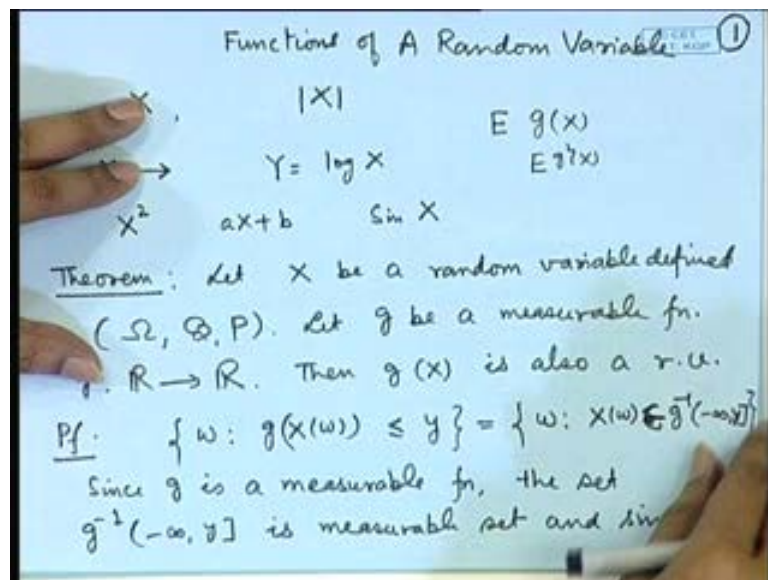 Functions of A Random Variable ①
X, |X| E g(X)
→ Y = log X E g²(X)
X² aX+b Sin X
Theorem: Let X be a random variable defined
(Ω, 𝓑, P). Let g be a measurable fn.
ℝ → ℝ. Then g(X) is also a r.v.
Pf. { ω: g(X(ω)) ≤ y } = { ω: X(ω) ∈ g⁻¹(-∞, y] }
Since g is a measurable fn, the set
g⁻¹(-∞, y] is measurable set and